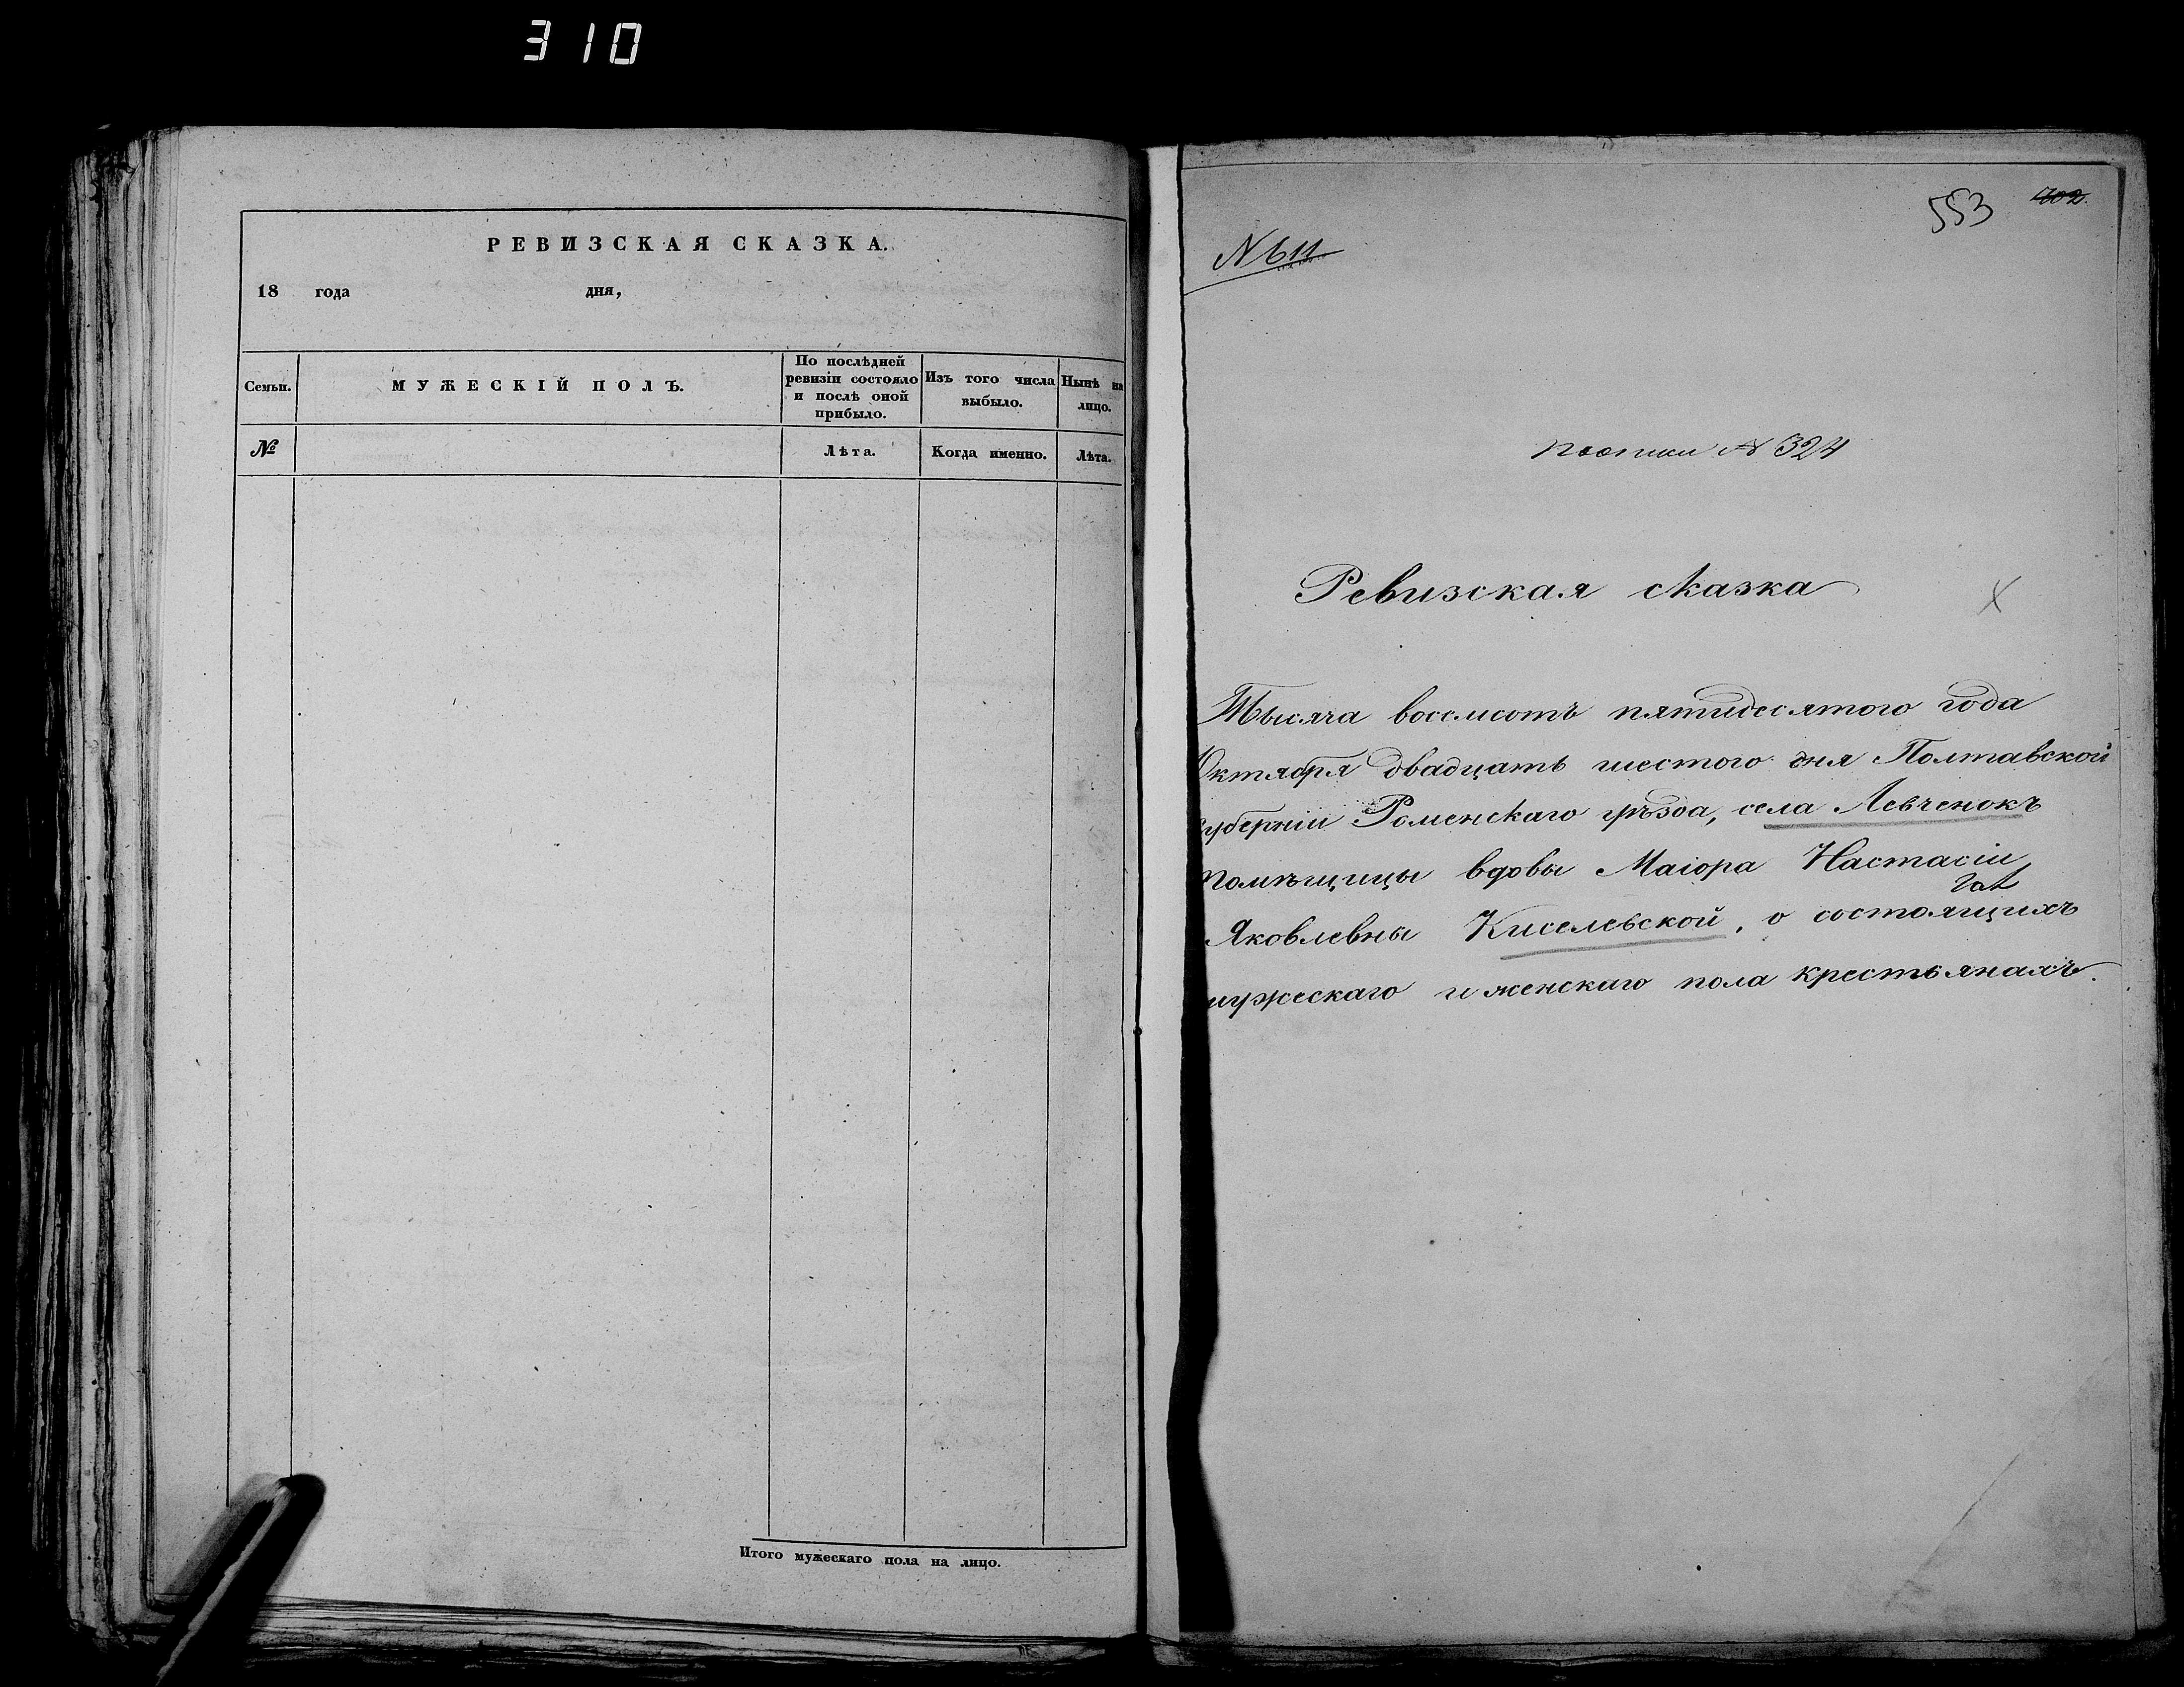 310
РЕВИЗСКАЯ СКАЗКА.
18 года дня,
Семьи.
МУЖЕСКІЙ ПОЛЪ.
По послѣдней
ревизіи состояло
и послѣ оной
прибыло.
Изъ того числа
выбыло.
Нынѣ на
лицо.
№
Лѣта.
Когда именно.
Лѣта.
Итого мужескаго пола на лицо.
553
N 611
N 324
Ревизская сказка
Тысяча восемсотъ пятидесятого года
Октября двадцать шестого дня Полтавской
губерніи Роменскаго уѣзда, села Левченокъ
помѣщицы вдовы Маіора Настасіи
Яковлевны Киселевской, о состоящихъ
мужескаго и женскаго пола крестьянахъ.